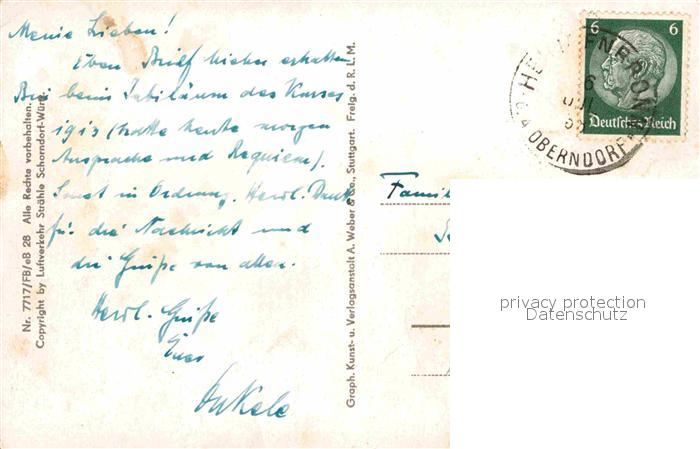 Meine Lieben!
Eben Brief hierher erhalten
Bin beim Jubiläum des Kurses
1913 (hatte heute morgen
Ansprache und Requiem).
Sonst in Ordnung. Herzl. Dank
für die Nachricht und
die Grüße von allen.
Herzl. Grüße
Euer
Onkele
Nr. 7717/FB/eB 28 Alle Rechte vorbehalten.
Copyright by Luftverkehr Strähle Schorndorf-Württ.
Graph. Kunst- u. Verlagsanstalt A. Weber & Co., Stuttgart. Freig. d. R. L. M.
6 6
Deutsches Reich
OBERNDORF
Famil
privacy protection
Datenschutz